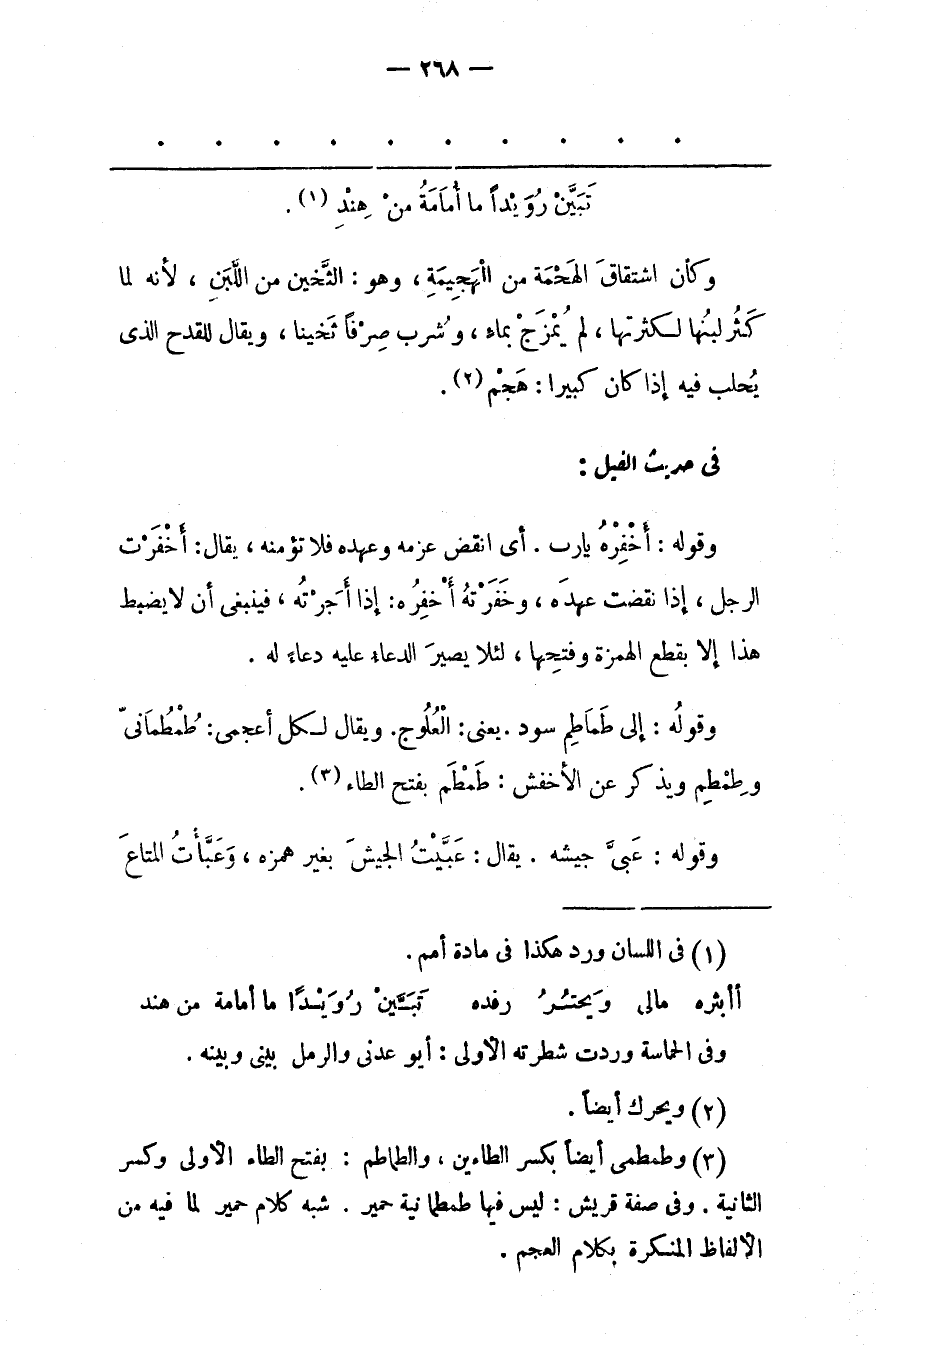 — ٢٦٨ —
. . . . . . . . . .
تَبَيَّنْ رُوَيْداً ما أُمَامَةُ منْ هِنْدِ (١) .
وكأن اشتقاقَ الهَجْمَة من الْهَجِيمَةِ ، وهو : الثَّخين من اللَّبَنِ ، لأنه لما
كَثُر لبنُها لكثرتها ، لم يُمْزَجْ بماء ، وشُرب صِرْفاً ثَخينا ، ويقال للقدح الذى
يُحلب فيه إذا كان كبيرا : هَجْم (٢) .
فى حديث الفيل :
وقوله : أَخْفِرْهُ يارب . أى انقض عزمه وعهده فلا تؤمنه ، يقال : أَخْفَرْت
الرجل ، إذا نقضت عهدَه ، وخَفَرْتهُ أَخْفِرُه : إذا أَجرْتُه ، فينبغى أن لا يضبط
هذا إلا بقطع الهمزة وفتحِها ، لئلا يصيرَ الدعاء عليه دعاءً له .
وقولُه : إلى طَمَاطِم سود . يعنى : الْعُلُوج . ويقال لكل أعجمى : طُمْطُمَانىّ
وطِمْطِم ويذكر عن الأخفش : طَمْطَم بفتح الطاء (٣) .
وقوله : عَبىَّ جيشه . يقال : عَبَّيْتُ الجيشَ بغير همزه ، وَعَبَّأْتُ المتاعَ
(١) فى اللسان ورد هكذا فى مادة أمم .
أأبثره مالى وَيحتـُـرُ رفده تَبَـيَّنْ رُوَيْـدًا ما أمامة من هند
وفى الحماسة وردت شطرته الأولى : أيو عدنى والرمل بينى وبينه .
(٢) ويحرك أيضاً .
(٣) وطمطمى أيضاً بكسر الطاءين ، والطماطم : بفتح الطاء الأولى وكسر
الثانية . وفى صفة قريش : ليس فيها طمطمانية حمير . شبه كلام حمير لما فيه من
الألفاظ المنكرة بكلام العجم .